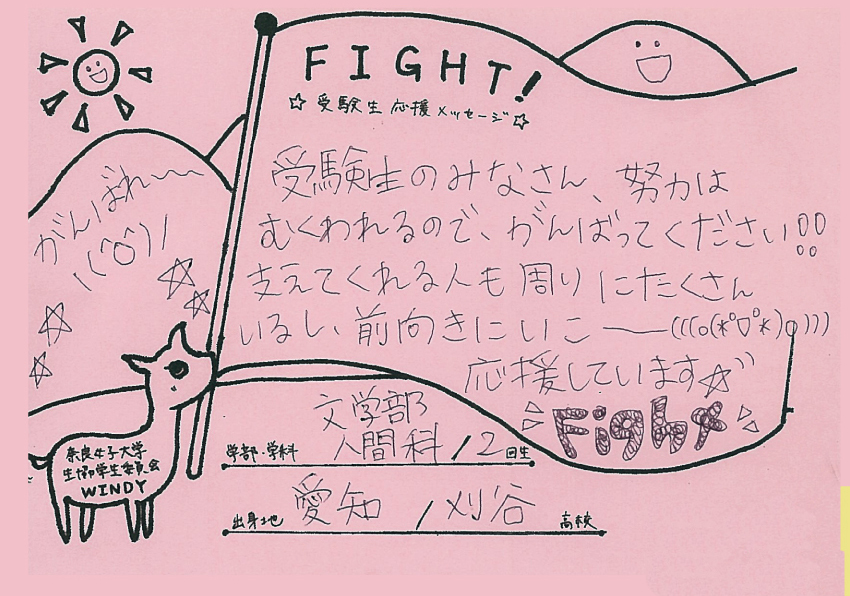 FIGHT!
☆受験生応援メッセージ☆
がんばれ〜〜
\(^o^)/
受験生のみなさん、努力は
むくわれるので、がんばってください!!
支えてくれる人も周りにたくさん
いるし、前向きにいこー(((o(*ﾟ▽ﾟ*)o)))
応援しています☆
Fight
学部・学科 文学部 人間科/2回生
出身地 愛知/刈谷 高校
奈良女子大学
生協学生委員会
WINDY